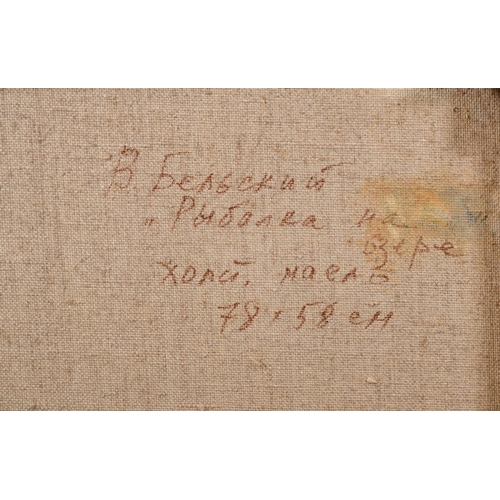 В. Бельский
„Рыбалка на "
озере
холст, масло
78×58 см